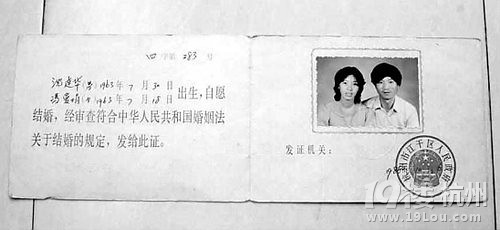 四字第283号
沈建华(男)1963年7月30日
冯 娟(女)1963年7月18日
出生,自愿
结婚,经审查符合中华人民共和国婚姻法
关于结婚的规定,发给此证。
发证机关:
杭州市江干区人民政府
198
19楼杭州
www.19lou.com